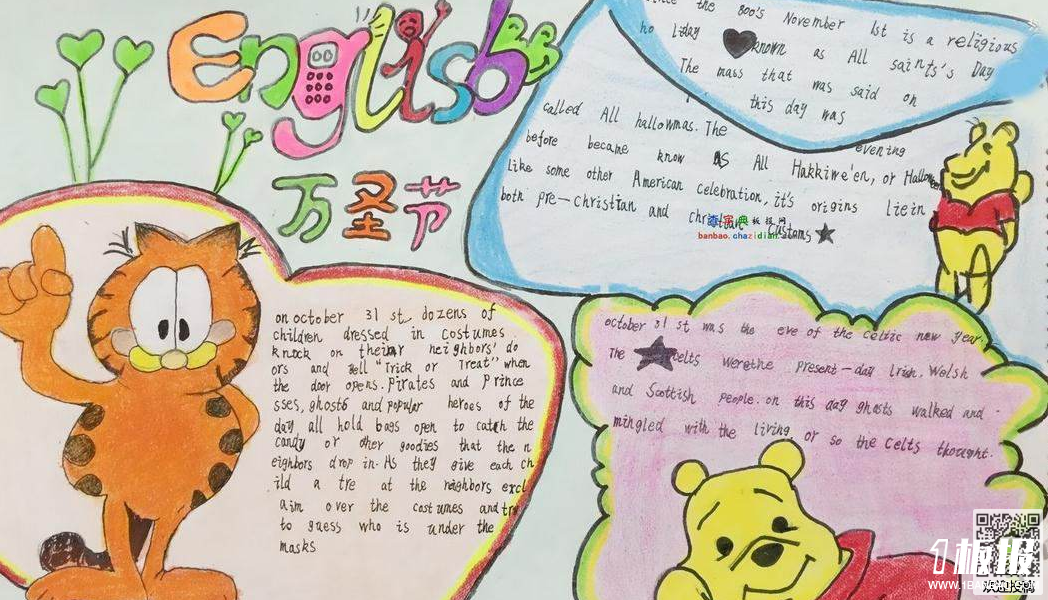 English
万圣节
since the 800's November 1st is a religious
ho liday known as All saints's Day
The mass that was said on
this day was
called All hallowmas. The evening
before became know AS All Hakkiwe'en, or Halloween
Like some other American celebration, it's origins liein
both pre-christian and christian customs
查字典板报网
banbao.chazidian.com
on october 31 st dozens of
children dressed in costumes
knock on their neighbors' do
ors and yell "Trick or Treat" when
the door opens. Pirates and Prince
sses, ghosts and popular heroes of the
day all hold bags open to catch the
candy or other goodies that the n
eighbors drop in. As they give each ch
ild a tre at the neighbors excl
aim over the costumes and try
to guess who is under the
masks
october 31 st was the eve of the celtic new year.
The celts werethe present-day lrish. Welsh
and Scottish people. on this day ghosts walked and
mingled with the living. or so the Celts thought.
1板报
WWW.1BANBAO.COM
欢迎投稿